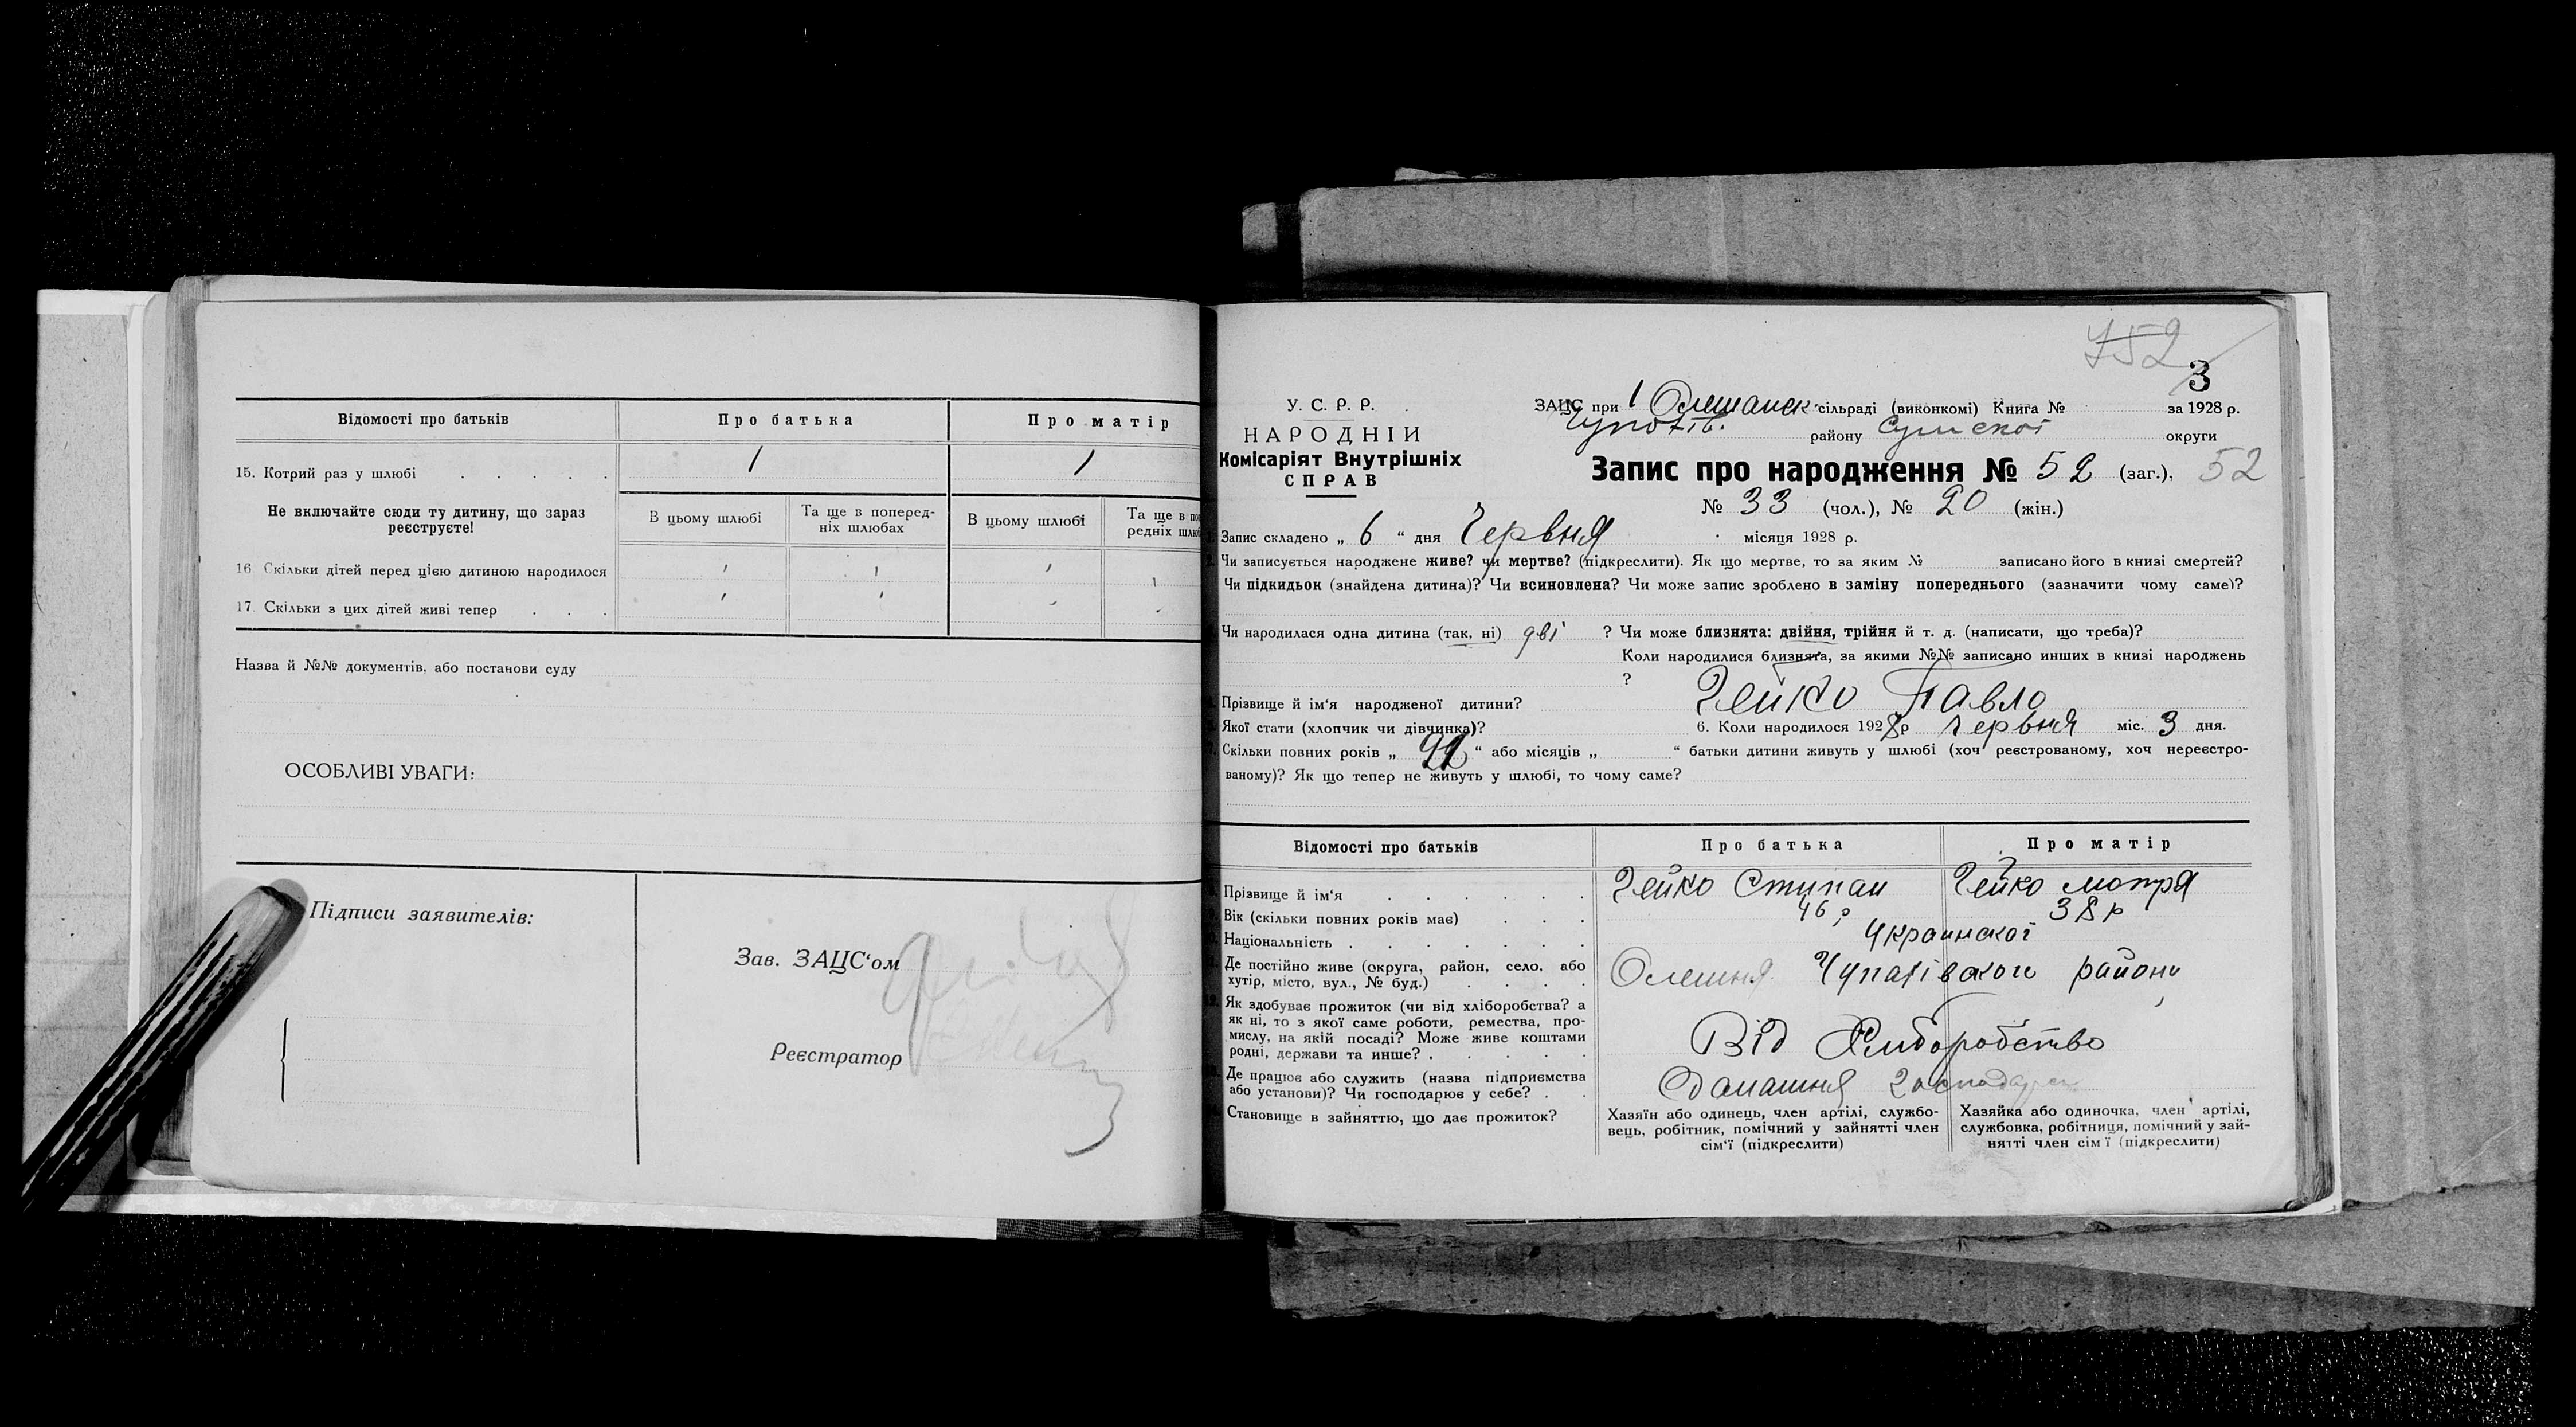 Відомості про батьків Про батька Про матір
15. Котрий раз у шлюбі . . . . . 1 1
Не включайте сюди ту дитину, що зараз реєструєте!
В цьому шлюбі Та ще в поперед-
ніх шлюбах В цьому шлюбі Та ще в по
редніх шлю
16 Скільки дітей перед цією дитиною народилося
17. Скільки з цих дітей живі тепер . . .
Назва й №№ документів, або постанови суду
ОСОБЛИВІ УВАГИ:
Підписи заявителів:
Зав. ЗАЦС‘ом
Реєстратор
752
3
У. С. Р. Р.
НАРОДНІЙ
Комісаріят Внутрішніх
СПРАВ
ЗАЦС при 1 Олешанск сільраді (виконкомі) Книга № за 1928 р.
району Сумскої округи
Запис про народження № 52 (заг.), 52
№ 33 (чол.), № 20 (жін.)
Запис складено „ 6 “ дня Червня місяця 1928 р.
Чи записується народжене живе? чи мертве? (підкреслити). Як що мертве, то за яким № записано його в книзі смертей?
Чи підкидьок (знайдена дитина)? Чи всиновлена? Чи може запис зроблено в заміну попереднього (зазначити чому саме)?
Чи народилася одна дитина (так, ні) дві ? Чи може близнята: двійня, трійня й т. д. (написати, що треба)?
Коли народилися близнята, за якими №№ записано инших в книзі народжень
?
Прізвище й ім‘я народженої дитини? Гейко Павло
Якої стати (хлопчик чи дівчинка)? 6. Коли народилося 1928р Червня міс. 3 дня.
Скільки повних років „ 22 “ або місяців „ “ батьки дитини живуть у шлюбі (хоч реєстрованому, хоч нереєстро-
ваному)? Як що тепер не живуть у шлюбі, то чому саме?
Відомості про батьків Про батька Про матір
Прізвище й ім‘я . . . . . . Гейко Степан Гейко мотря
Вік (скільки повних років має) . . . 46 р 38 р
Національність . . . . . . . Украинскої
Де постійно живе (округа, район, село, або
хутір, місто, вул., № буд.) . . . . Олешня Чупахівского району
Як здобуває прожиток (чи від хліборобства? а
як ні, то з якої саме роботи, ремества, про-
мислу, на якій посаді? Може живе коштами
родні, держави та инше? . . . . . Від Хлиборобство
Де працює або служить (назва підприємства
або установи)? Чи господарює у себе? . . Домашня
Становище в зайняттю, що дає прожиток?
Хазяїн або одинець, член артілі, службо-
вець, робітник, помічний у зайнятті член
сім‘ї (підкреслити)
Хазяйка або одиночка, член артілі,
службовка, робітниця, помічний у зай-
нятті член сім‘ї (підкреслити)